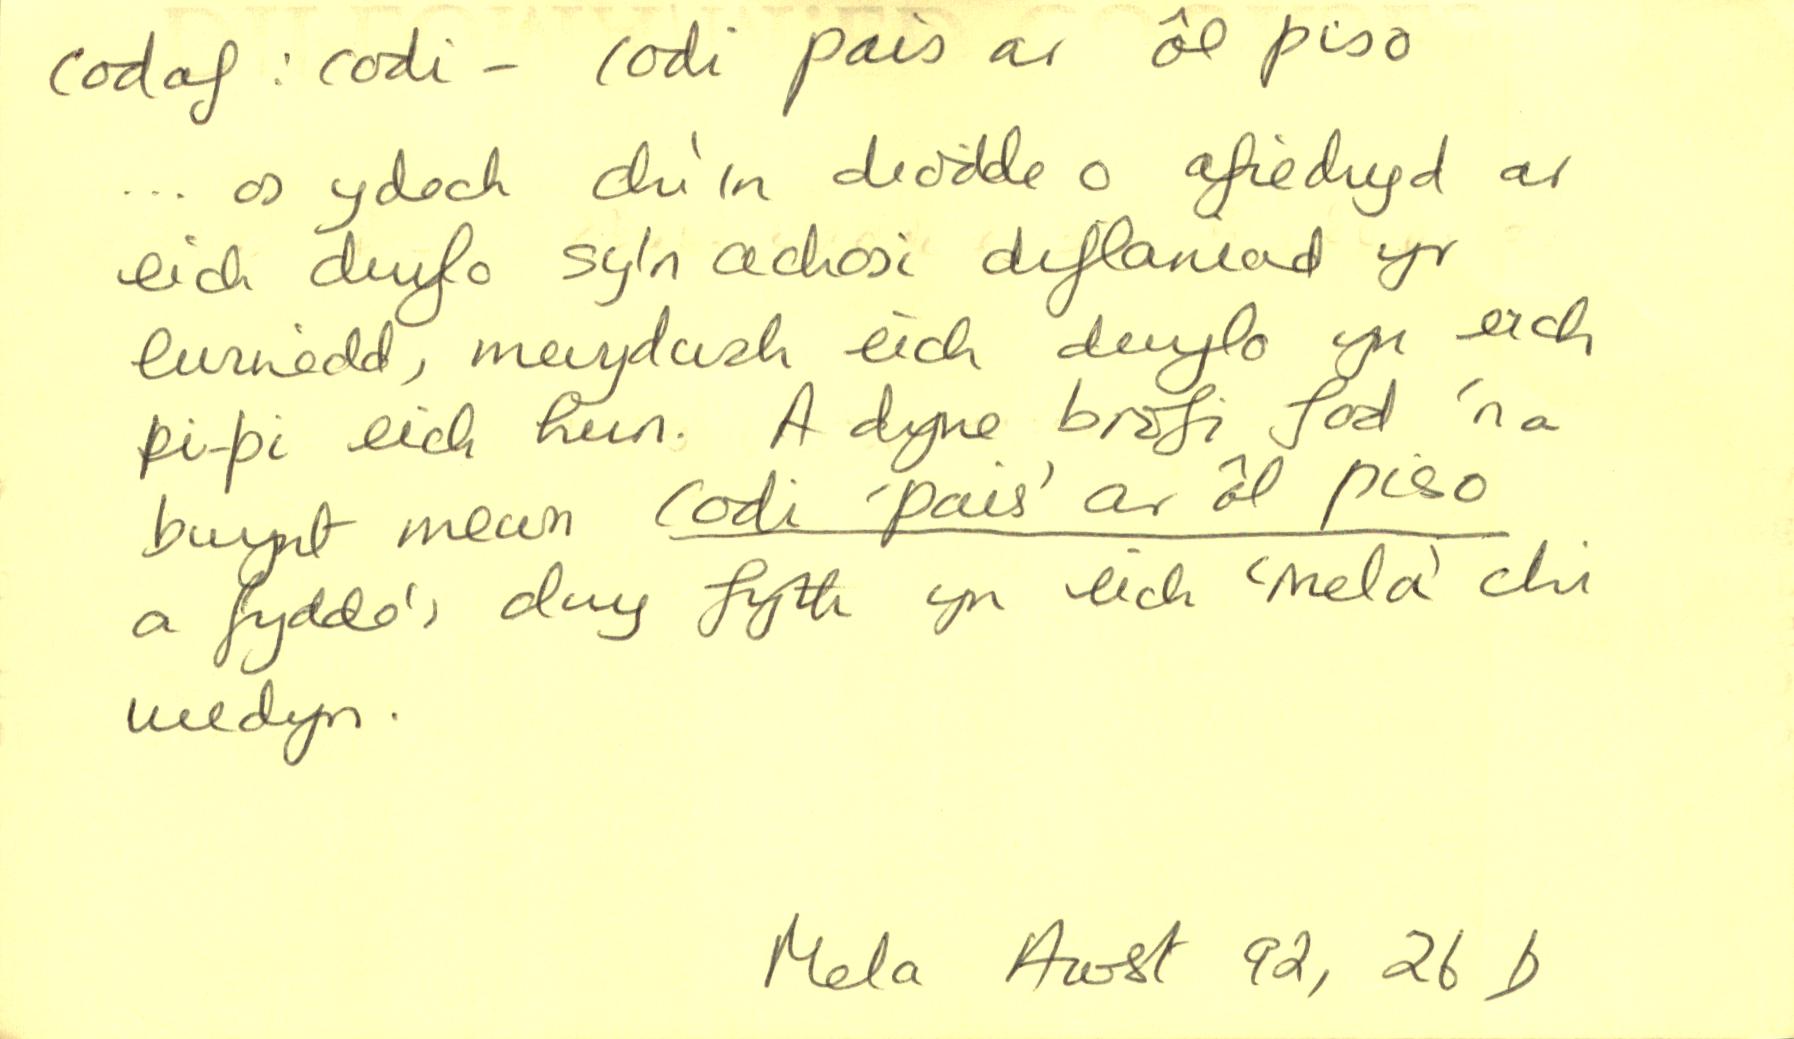 codaf : codi - codi pais ar ôl piso
... os ydech chi'n diodde o afiechyd ar
eich dwylo sy'n achosi diflaniad yr
ewinedd, mwydwch eich dwylo yn eich
pi-pi eich hun. A dyne brofi fod 'na
bwynt mewn codi 'pais' ar ôl piso
a fyddo', dwy fyth yn eich 'Mela' chi
wedyn.
Mela Awst 92, 26 b